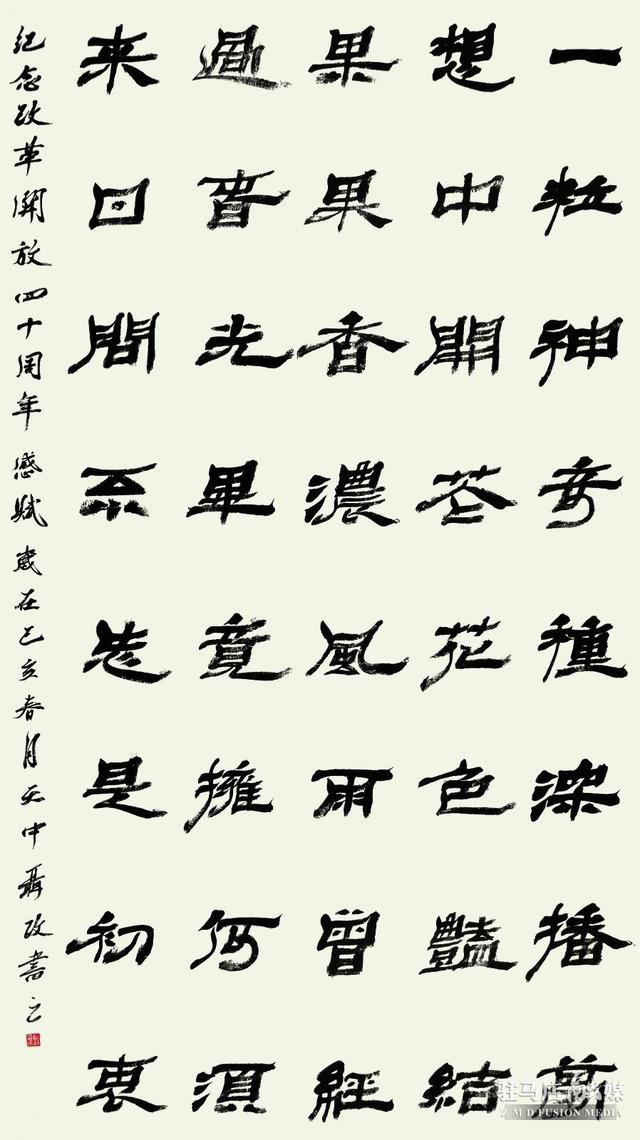 一粒神奇種深播夢
想中開花花色豔結
果果香濃風雨曾經
過春光畢竟擁何須
来日問不忘是初衷
紀念改革開放四十周年感賦歲在己亥春月天中聶改書之
驻马店融媒
ZMD FUSION MEDIA